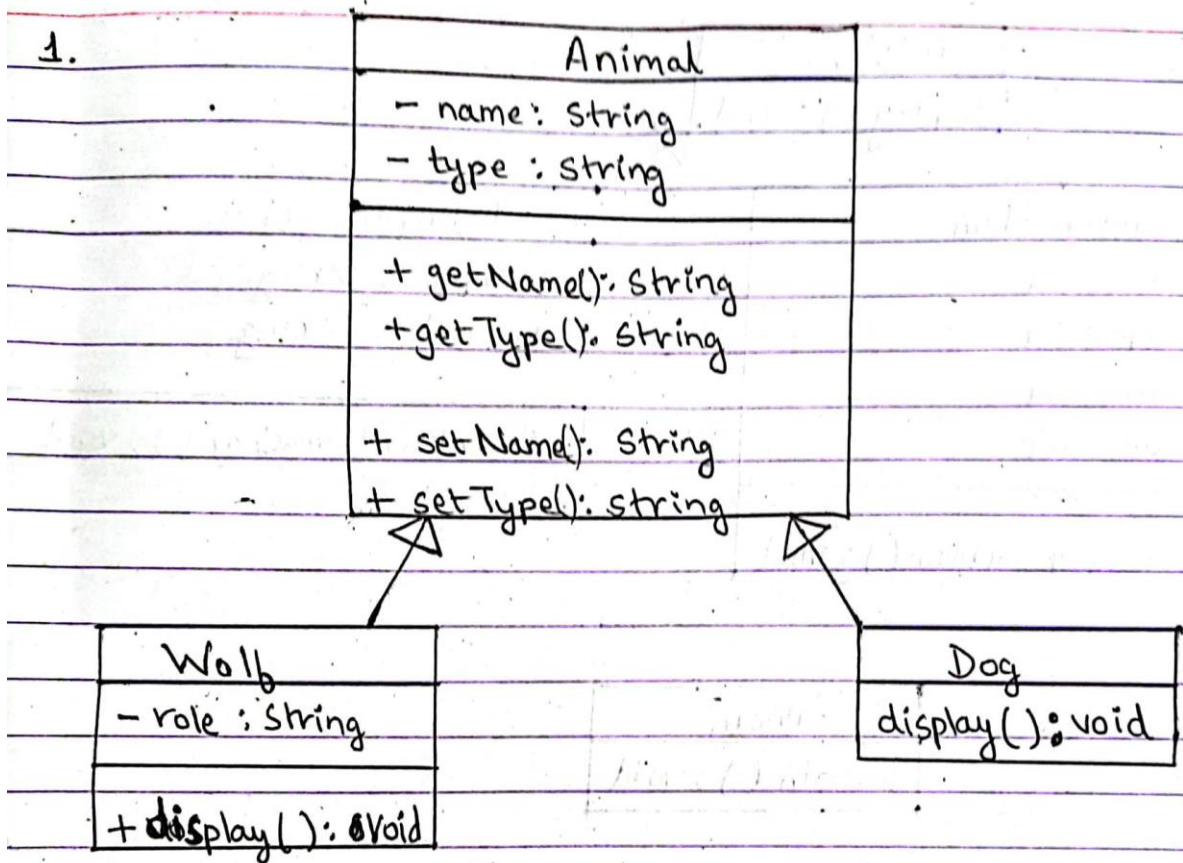 1.
Animal
- name: String
- type : String
+ getName(): String
+getType(): String
+ setName(): String
+ setType(): string
Wolf
- role : String
+ display(): void
Dog
display(): void